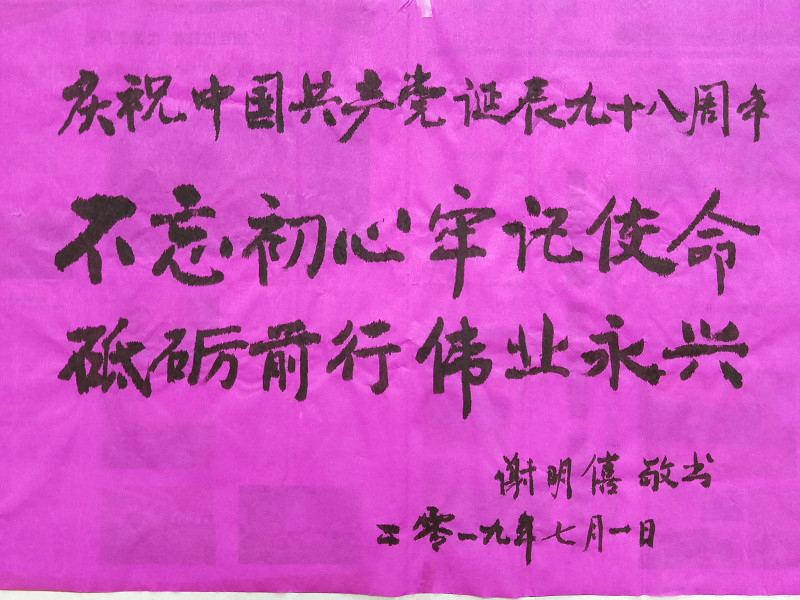 庆祝中国共产党诞辰九十八周年
不忘初心牢记使命
砥砺前行伟业永兴
谢明僖敬书
二零一九年七月一日